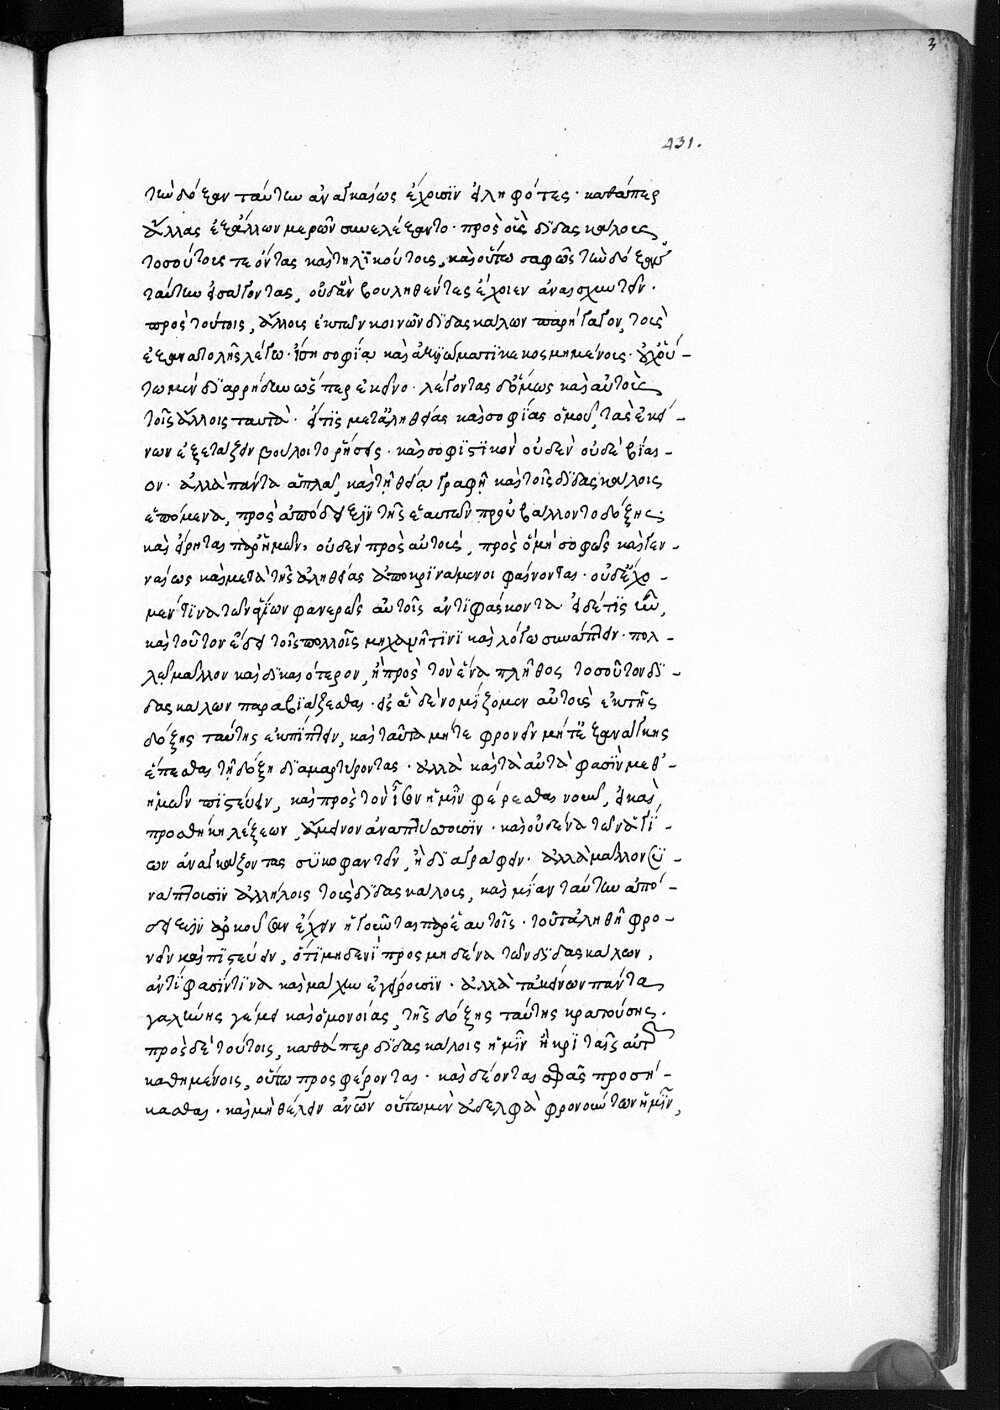 3
431.
τὴν δόξαν ταύτην ἀναγκαίως ἔχουσιν εἰληφότες· καθάπερ
ἄλλας ἐξ ἄλλων μερῶν συνελέξαντο· πρὸς οἷς διδασκάλοις
τοσούτοις τε ὄντας καὶ τηλικούτοις, καὶ οὕτω σαφῶς τὴν δόξαν
ταύτην εἰσάγοντας, οὐδ' ἂν βουληθέντες ἔχοιεν ἀναισχυντεῖν·
πρὸς τούτοις, ἄλλοις ἐκ τῶν κοινῶν διδασκάλων παρήγαγον, τοῖς
ἐξ ἀνατολῆς λέγω· ἴσῃ σοφίᾳ καὶ ἀξιώματι κεκοσμημένοις·
τω μὲν διαρρήδην ὥσπερ ἐκεῖνο· λέγοντας δ' ὅμως καὶ αὐτοὺς
τοῖς ἄλλοις ταυτά· εἴ τις μετ' ἀληθείας καὶ σοφίας ὁμοῦ, τὰς ἐκεί-
νων ἐξετάζειν βούλοιτο ῥήσεις· καὶ σοφιστικὸν οὐδὲν οὐδὲ βίαι-
ον· ἀλλὰ πάντα ἁπλᾶ, καὶ τῇ θείᾳ γραφῇ καὶ τοῖς διδασκάλοις
ἑπόμενα, πρὸς ἀπόδειξιν τῆς ἑαυτῶν προὐβάλλοντο δόξης·
καὶ εἴρηται παρ' ἡμῶν· οὐδὲν πρὸς αὐτούς, πρὸς ὃ μὴ σοφῶς καὶ γεν-
ναίως καὶ μετὰ τῆς ἀληθείας ἀποκρινάμενοι φαίνονται· οὐδ' ἔχο-
μεν τινὰ τῶν ἁγίων φανερῶς αὐτοῖς ἀντιφάσκοντα· εἰ δέ τις ἦν,
καὶ τοῦτον ἔδει τοῖς πολλοῖς μηχανῇ τινι καὶ λόγῳ συνάπτειν· πολ-
λῷ μᾶλλον καὶ δικαιότερον, ἢ πρὸς τὸν ἕνα πλῆθος τοσοῦτον δι-
δασκάλων παραβιάζεσθαι· εἰ δὲ νομίζομεν αὐτοὺς ἐκ τῆς
δόξης ταύτης ἐκπίπτειν, καὶ ταῦτα μήτε φρονεῖν μήτ' ἐξ ἀνάγκης
ἕπεσθαι τῇ δόξῃ διαμαρτύροντας· ἀλλὰ καὶ τὰ αὐτὰ φασὶν μεθ'
ἡμῶν πιστεύειν, καὶ πρὸς τὸν ἴσον ἡμῖν φέρεσθαι νοῦν, εἰ καὶ
προσθήκῃ λέξεων, ἄμεινον ἀναπτύσσουσιν· καὶ οὐδένα τῶν ἁγί-
ων ἀναγκάζοντας συκοφαντεῖν, ἢ διαγράφειν· ἀλλὰ μᾶλλον συ-
νάπτουσιν ἀλλήλοις τοὺς διδασκάλους, καὶ μίαν ταύτην ἀπό-
δειξιν ἀρκοῦσαν ἔχειν ἡγοῦνται παρ' ἑαυτοῖς· τοῦ τἀληθῆ φρο-
νεῖν καὶ πιστεύειν, ὅτι μηδενὶ πρὸς μηδένα τῶν διδασκάλων,
ἀντίφασίν τινα καὶ μάχην ἐγείρουσιν· ἀλλὰ τἀκείνων πάντα
γαλήνης γέμει καὶ ὁμονοίας, τῆς δόξης ταύτης κρατούσης·
πρὸς δὲ τούτοις, καθάπερ διδασκάλοις ἡμῖν ἢ κριταῖς αὐτοῖς
καθημένοις, οὕτω προσφέρονται· καὶ δέονται σφᾶς προσή-
κασθαι· καὶ μὴ θέλειν ἀνθ' ὧν οὕτω μὲν ἀδελφὰ φρονοῦντων ἡμῖν,